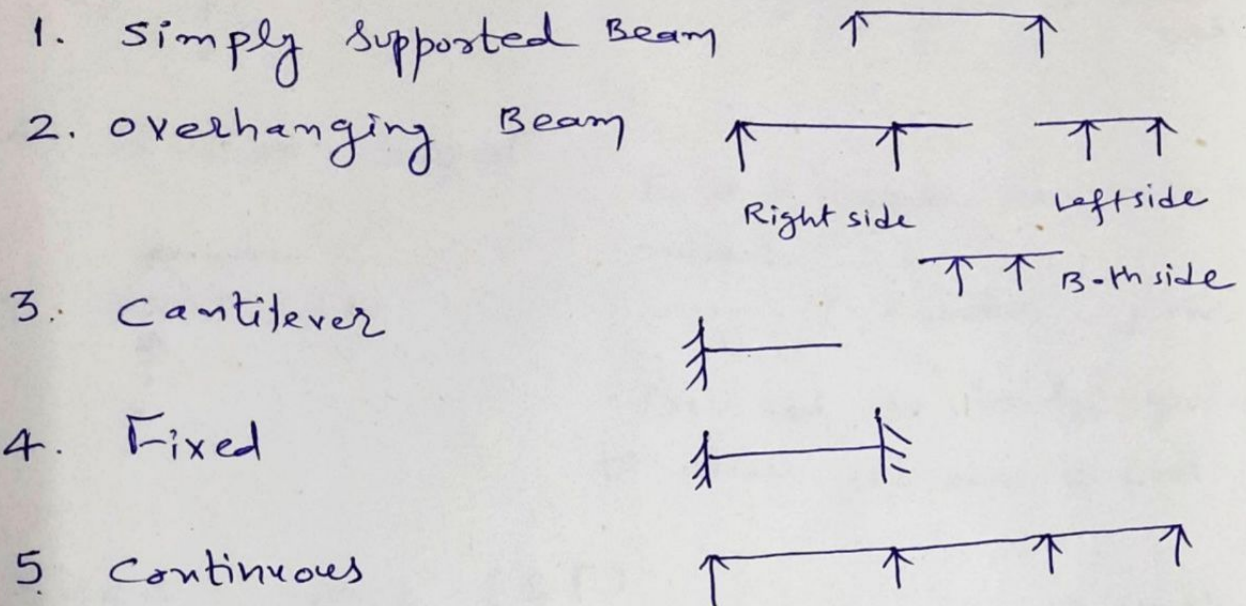 1. Simply Supported Beam
2. Overhanging Beam
Right side
Left side
Both side
3. Cantilever
4. Fixed
5 Continuous